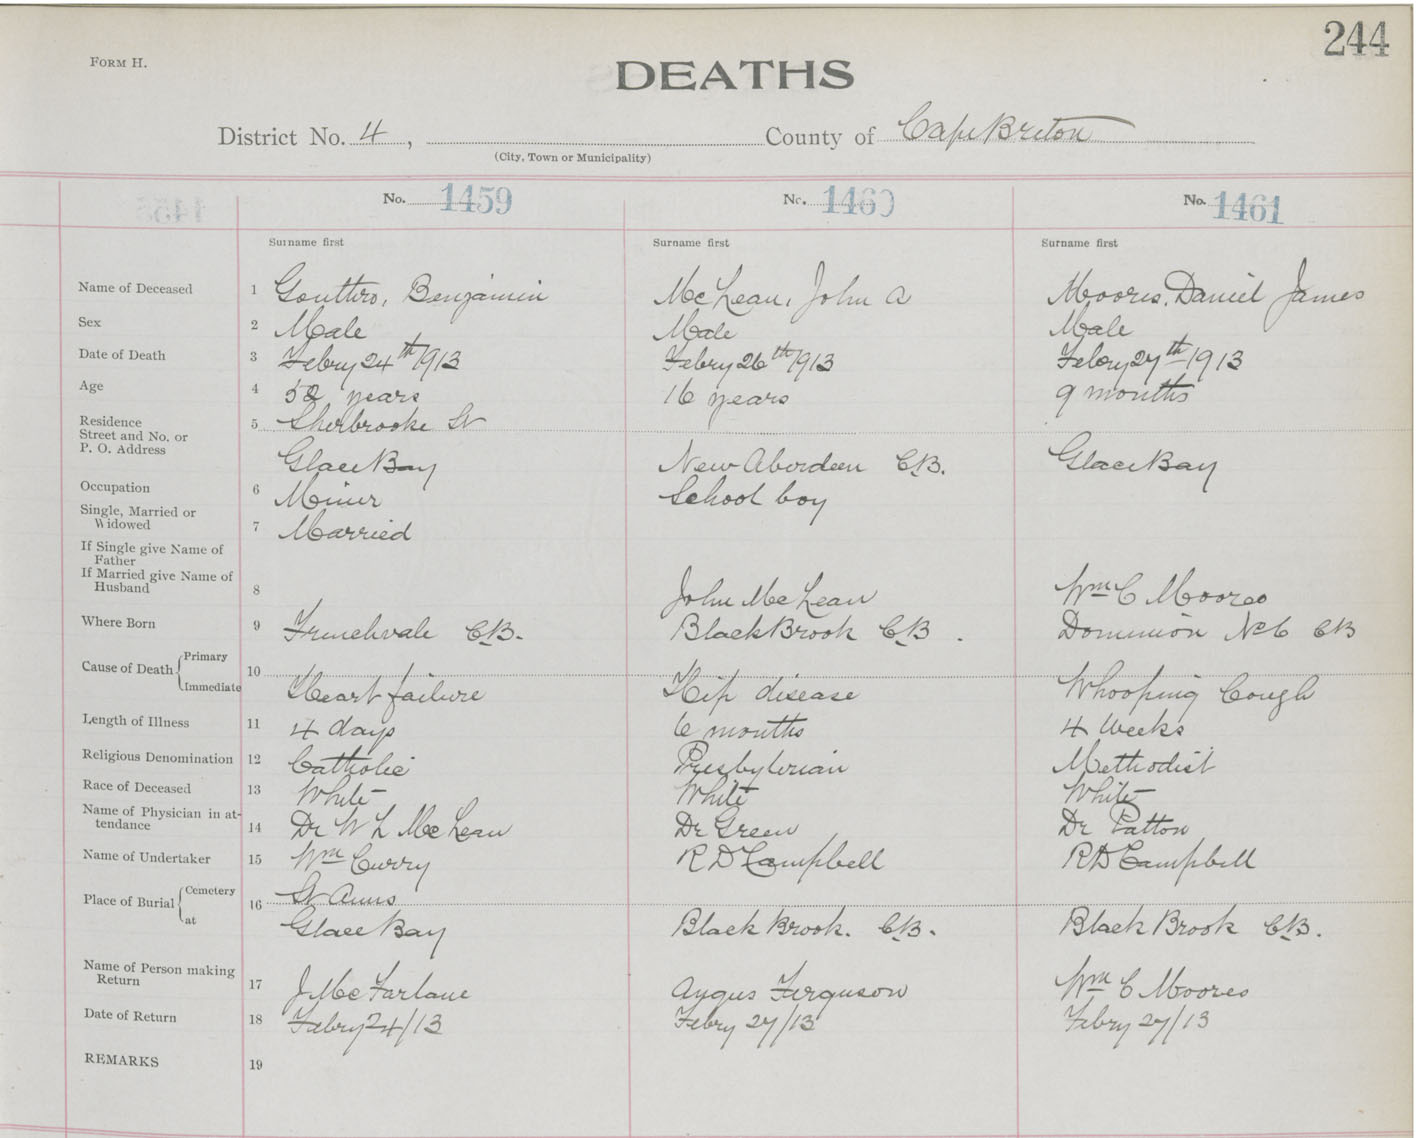 244
FORM H.
DEATHS
District No. 4, County of Cape Breton
(City, Town or Municipality)
No. 1459 No. 1460 No. 1461
Surname first Surname first Surname first
Name of Deceased 1 Gouthro, Benjamin McLean, John A Moores, Daniel James
Sex 2 Male Male Male
Date of Death 3 Febry 24th 1913 Febry 26th 1913 Febry 27th 1913
Age 4 52 years 16 years 9 months
Residence 5 Sherbrooke St
Street and No. or
P. O. Address Glace Bay New Aberdeen C.B. Glace Bay
Occupation 6 Miner School boy
Single, Married or
Widowed 7 Married
If Single give Name of
Father
If Married give Name of
Husband 8 John McLean Wm C Moores
Where Born 9 Frenchvale C.B. Black Brook C.B. Dominion No 6 CB
Cause of Death Primary 10
Immediate Heart failure Hip disease Whooping Cough
Length of Illness 11 4 days 6 months 4 weeks
Religious Denomination 12 Catholic Presbyterian Methodist
Race of Deceased 13 White White White
Name of Physician in at-
tendance 14 Dr W L McLean Dr Green Dr Patton
Name of Undertaker 15 Wm Curry R D Campbell R D Campbell
Place of Burial Cemetery 16 St Anns
at Glace Bay Black Brook. C.B. Black Brook C.B.
Name of Person making
Return 17 J McFarlane Angus Ferguson Wm C Moores
Date of Return 18 Febry 24/13 Febry 27/13 Febry 27/13
REMARKS 19